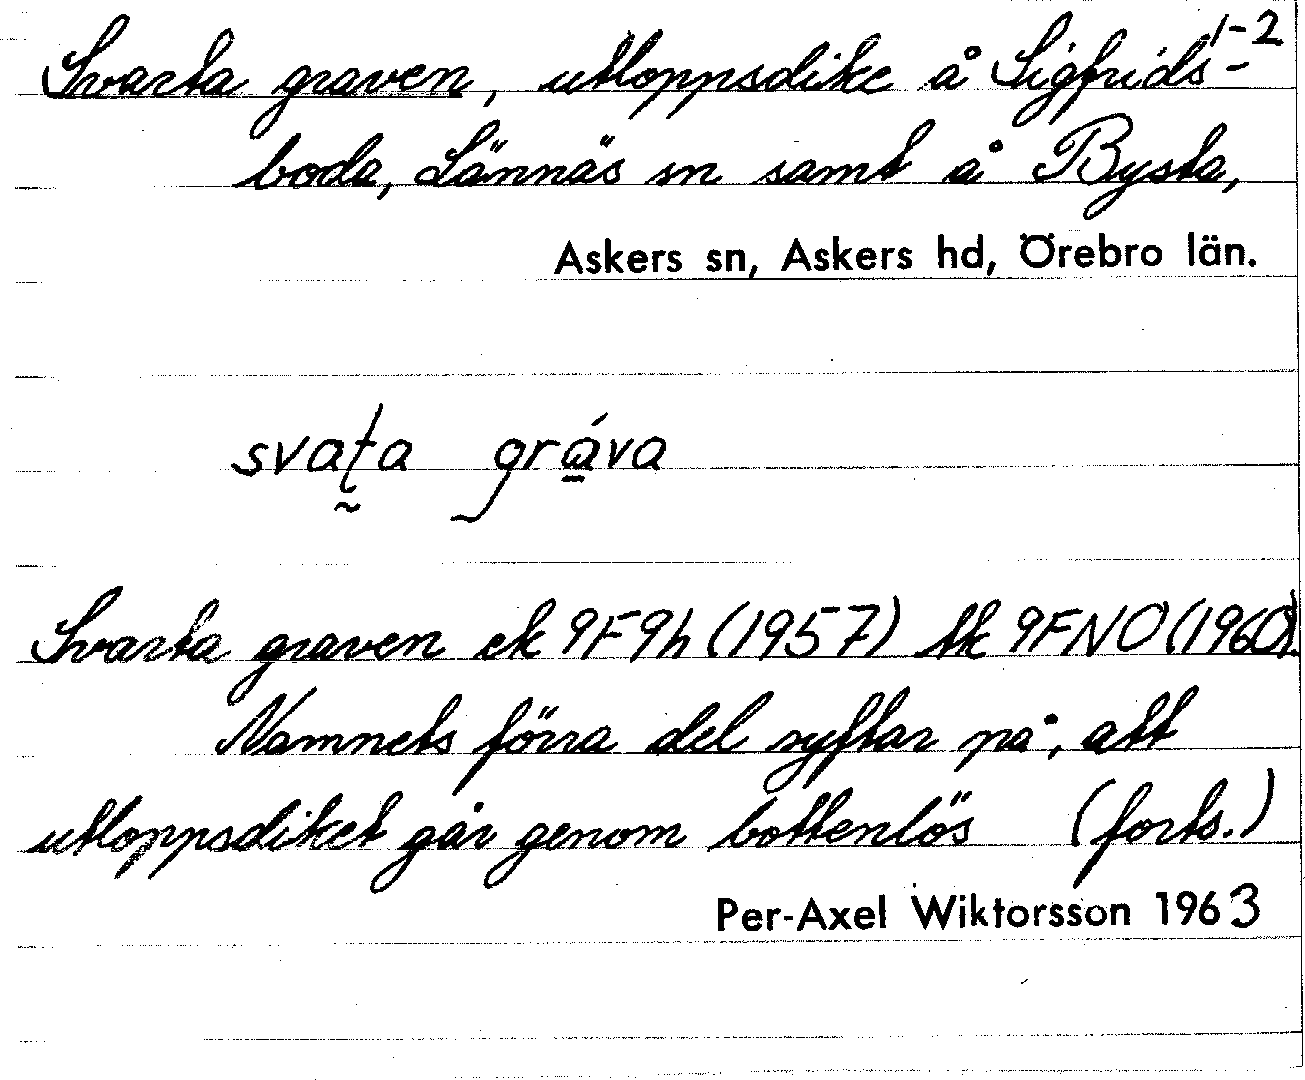 1-2
Svarta graven, utloppsdike å Sigfrids-
boda, Lännäs sn samt å Bysta,
Askers sn, Askers hd, Örebro län.
svat̰a grá̱va
Svarta graven ek 9F9h (1957) tk 9FNO (1960).
Namnets förra del syftar på, att
utloppsdiket går genom bottenlös (forts.)
Per-Axel Wiktorsson 1963